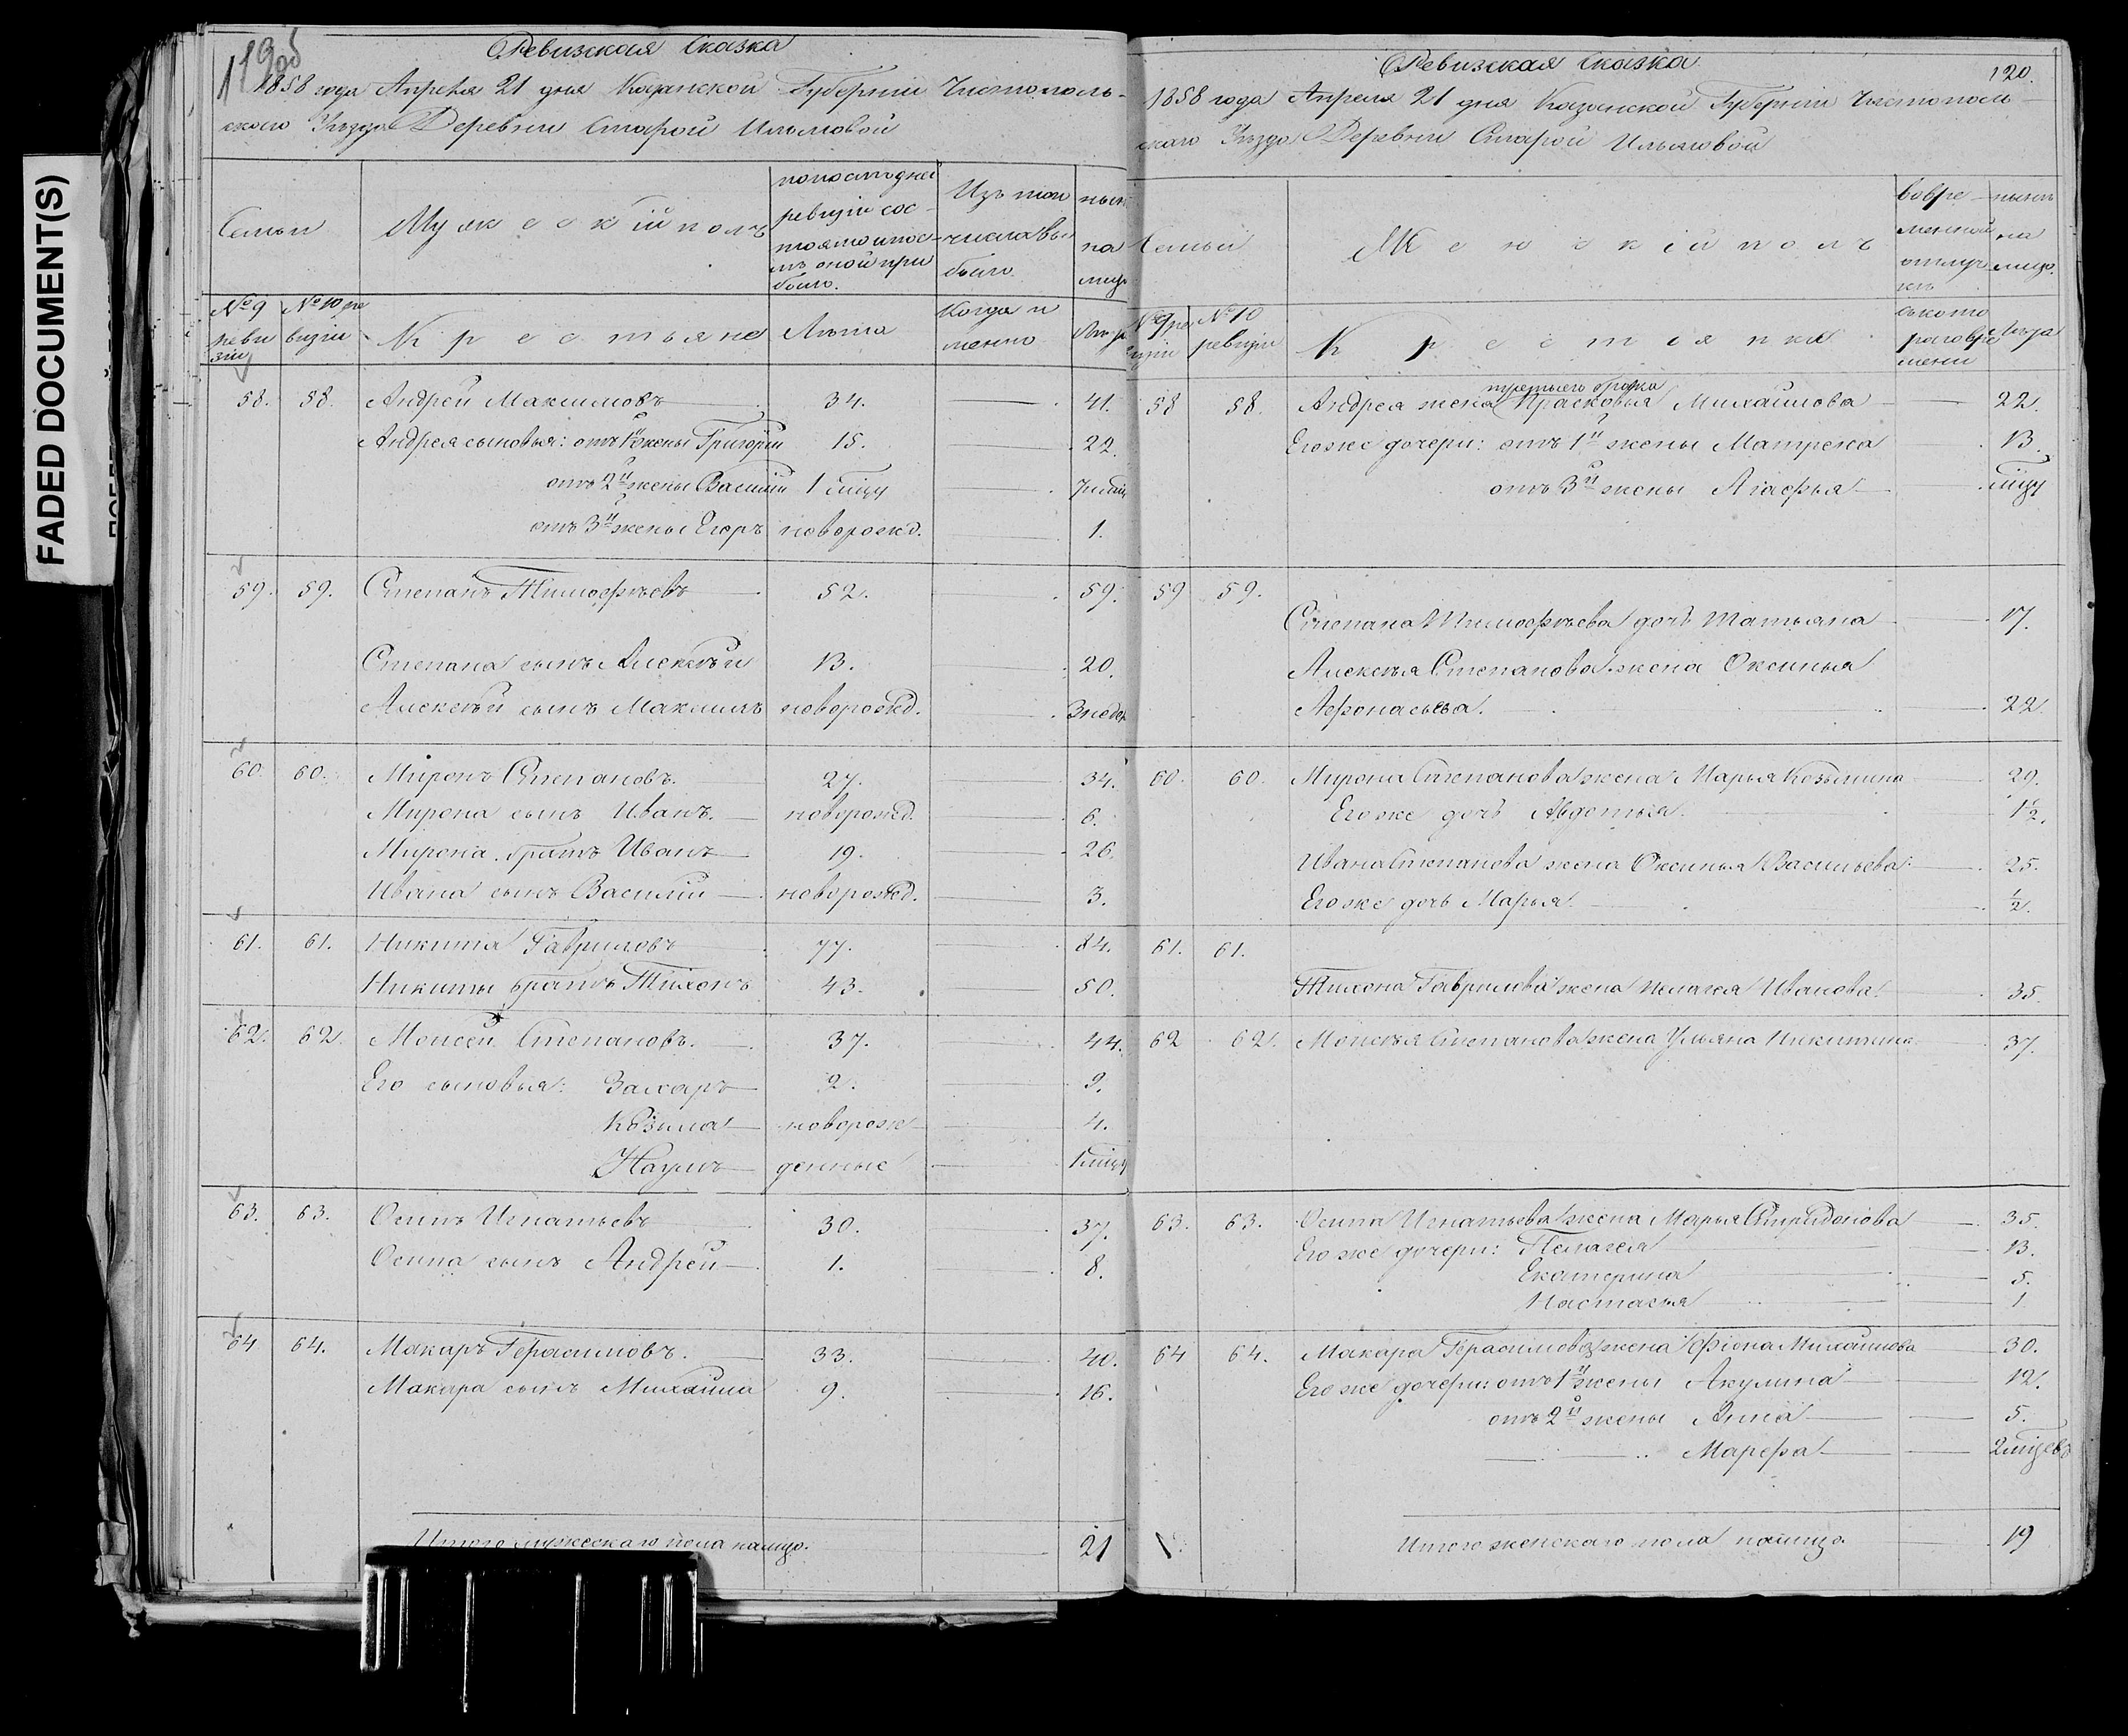 FADED DOCUMENT(S)
Ревизская Сказка
1858 года Апреля 21 дня Казанской Губерніи Чистополь-
скаго Уѣзда Деревни Старой Ильмовой
Семьи
Мужескій полъ
по последней ревизіи состояло и после оной прибыло.
Изъ того числа выбыло.
ныне на лицо
№ 9 ревизіи
№ 10 ревизіи
Крестьяне
Лѣта
Когда именно
Лѣта
58. 58. Андрей Максимовъ 34. 41.
Андрея сыновья: отъ 1й жены Григорій 15. 22.
отъ 2й жены Василій 1 мѣсяц
отъ 3й жены Егоръ новорожд. 1.
59. 59. Степанъ Тимофѣевъ 52. 59.
Степана сынъ Алексѣй 13. 20.
Алексѣй сынъ Максимъ новорожд. 3 недел
60. 60. Миронъ Степановъ. 27. 34.
Мирона сынъ Иванъ. новорожд. 6.
Мирона братъ Иванъ 19. 26.
Ивана сынъ Василій новорожд. 3.
61. 61. Никита Гавриловъ 77. 84.
Никиты братъ Тихонъ 43. 50.
62. 62. Моисей Степановъ. 37. 44.
Его сыновья: Захаръ 2. 9.
Козьма новорож 4.
Наумъ денные 1 мѣсц
63. 63. Осипъ Игнатьевъ 30. 37.
Осипа сынъ Андрей 1. 8.
64 64. Макаръ Герасимовъ. 33. 40.
Макара сынъ Михайла 9. 16.
Итого мужескаго пола налицо. 21
Ревизская Сказка
120.
1858 года Апреля 21 дня Казанской Губерніи Чистополь-
скаго Уѣзда Деревни Старой Ильмовой
Семьи
Женскій полъ
во временной отлучкѣ
ныне на лицо.
№ 9 ревизіи
№ 10 ревизіи
Крестьянки
съ котораго времени
Лѣта
третьего брака
58 58. Андрея жена Прасковья Михайлова 22.
Его же дочери: отъ 1й жены Матрена 13.
отъ 3й жены Агафья мѣсц
59 59.
Степана Тимофѣева дочь Татьяна 17.
Алексѣя Степанова жена Оксинья
Афонасьева. 22.
60. 60. Мирона Степанова жена Марья Козьмина 29.
Его же дочь Авдотья. 1 1/2.
Ивана Степанова жена Оксинья Васильева. 25.
Его же дочь Марья. 1/2.
61. 61.
Тихона Гаврилова жена Пелагея Иванова. 35.
62 62. Моисея Степанова жена Ульяна Никитина 37.
63. 63. Осипа Игнатьева жена Марья Спиридонова 35.
Его же дочери: Пелагея 13.
Екатерина 5.
Настасья 1
64 64. Макара Герасимова жена Михайлова 30.
Его же дочери: отъ 1й жены Акулина 12.
отъ 2й жены Анна 5.
Марфа 2 мѣсцевъ
Итого женскаго пола налицо 19